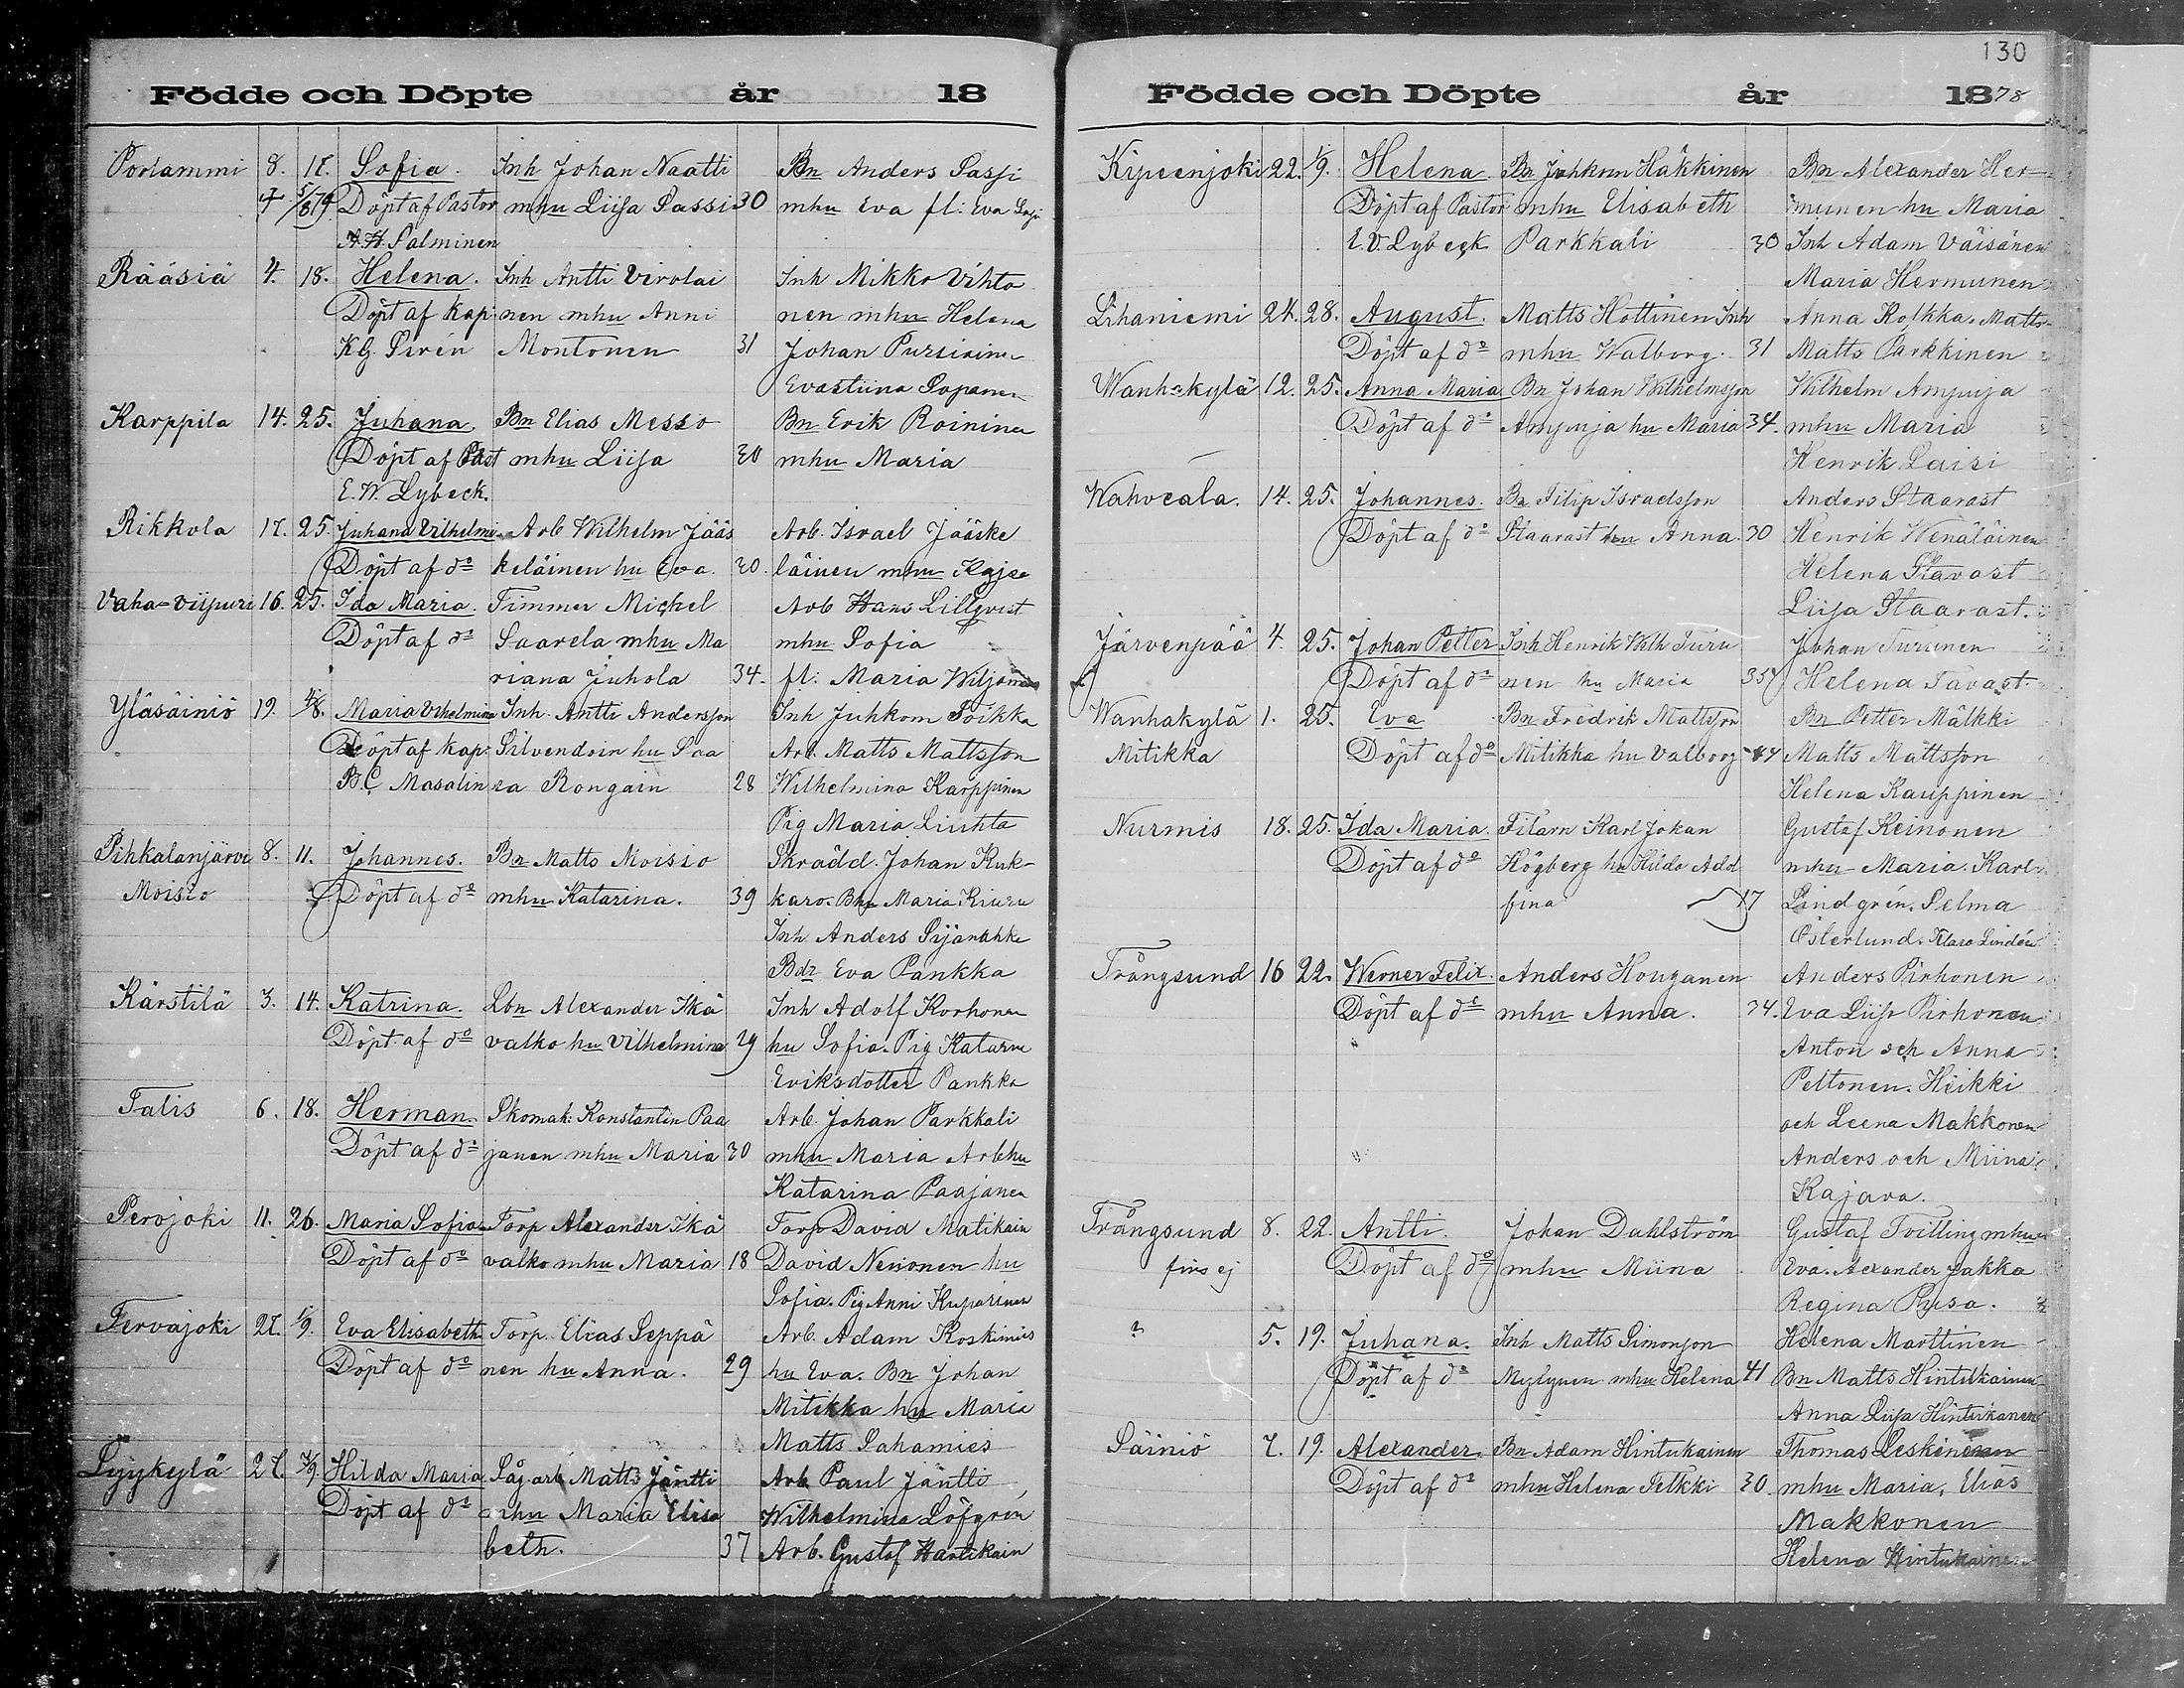 Födde och Döpte år 18
Portammi 8. 17. Sofia. Inh Johan Naatti Bn Anders Passi
† 5/8 79 Döpt af Pastor mhu Liisa Passi 30 mhu Eva fl: Eva
A.H. Salminen
Rääsiä 4. 18. Helena. Inh Antti Virolai Inh Mikko Vihto
Döpt af Kap: nen mhu Anni nen mhu Helena
K.G. Sirén Montonen 31 Johan Pursiainen
Evastiina Sopanen
Karppila 14. 25. Juhana. Bn Elias Messo Bn Erik Roininen
Döpt af Past mhu Liisa 30 mhu Maria
E.W. Lybeck.
Rikkola 17. 25. Juhana Vilhelmi. Arb Wilhelm Jääs Arb. Israel Jääske
Döpt af do keläinen hu Eva. 30. läinen mhu Kajsa
Vaha-Viipuri 16. 25. Ida Maria. Timmer Mickel Arb Hans Lillqvist
Döpt af do Saarela mhu Ma mhu Sofia
riana Juhola 34. fl: Maria Wiljanen
Yläsäiniö 19. Maria Vilhelmina Inh. Antti Andersson Inh Juhkom Poikka
Döpt af Kap: Silvendoin hu Saa Arb. Matts Mattsson
B.C Masalin ra Rongain 28 Wilhelmina Karppinen
Pig Maria Liuhta
Pihkalanjärvi 8. 11. Johannes. Bn Matts Moisio Skrädd. Johan Kuk-
Moisio Döpt af do mhu Katarina. 39 karo. Bhu Maria Kiuru
Inh Anders
Bdr Eva Pankka
Kärstilä 3. 14. Katrina. Lbn Alexander Ikä Inh Adolf Korhonen
Döpt af do valko hu Vilhelmina 29 hu Sofia. Pig Katarin
Eriksdotter Pankka
Talis 6. 18. Herman. Skomak: Konstantin Paa Arb. Johan Parkkali
Döpt af do janen mhu Maria 30 mhu Maria Arbhu
Katarina Paajanen
Perojoki 11. 26. Maria Sofia. Torp Alexander Ikä Torp David Matikain
Döpt af do valko mhu Maria 18 David Nenonen hu
Sofia. Pig Anni Kuparinen
Tervajoki 27. 1/9. Eva Elisabeth Torp. Elias Seppä Arb. Adam Koskimies
Döpt af do nen hu Anna. 29 hu Eva. Bn Johan
Mitikka hu Maria
Matts Sahamies
Lyykylä 27. Hilda Maria. Såg.arb Matts Jäntti Arb Paul Jäntti
Döpt af do mhu Maria Elisa Wilhelmina Löfgren
beth. 37 Arb. Gustaf Hartikain
130
Födde och Döpte år 1878
Kipeenjoki 22. 1/9. Helena. Bn Juhkom Häkkinen Bn Alexander Her-
Döpt af Pastor mhu Elisabeth munen hu Maria
E.V. Lybeck Parkkali 30 Inh Adam Väisänen
Maria Hermunen
Lihaniemi 24. 28. August. Matts Hottinen Inh Anna Kolkka. Matts
Döpt af do mhu Walborg. 31 Matts Parkkinen
Wanhakylä 12. 25. Anna Maria Bn Johan Wilhelmsson Wilhelm Ampuja
Döpt af do Ampuja hu Maria 34. mhu Maria
Henrik Laisi
Wahvaala. 14. 25. Johannes. Bn Filip Israelsson Anders Staarast
Döpt af do Staarast hu Anna. 30 Henrik Wenäläinen
Helena Stavast
Liisa Staarast.
Järvenpää 4. 25. Johan Petter Inh Henrik Wilh Turu Johan Turunen
Döpt af do nen hu Maria 35 Helena Tavast.
Wanhakylä 1. 25. Eva Bn Fredrik Mattsson Bn Petter Mälkki
Mitikka Döpt af do Mitikka hu Valborg 44 Matts Mattsson
Helena Kauppinen
Nurmis 18. 25. Ida Maria. Filarn Karl Johan Gustaf Keinonen
Döpt af do Högberg hu Hilda Adol mhu Maria. Karl
fina 17 Lindgrén. Selma
Österlund. Klara Lindén
Trångsund 16 22. Werner Felix. Anders Houganen Anders Pirhonen
Döpt af do mhu Anna. 34. Eva Liisa Pirhonen
Anton och Anna
Peltonen. Heikki
och Leena Makkonen
Anders och Miina
Kajava.
Trångsund 8. 22. Antti. Johan Dahlström Gustaf Tvilling mhu
fins ej Döpt af do mhu Miina Eva. Alexander Jakka
Regina Pusa.
? 5. 19. Juhana. Inh Matts Simonson Helena Marttinen
Döpt af do Myllynen mhu Helena 41 Bn Matts Hintukainen
Anna Liisa Hintukanen
Säiniö 7. 19. Alexander. Bn Adam Hintukainen Thomas Leskinenen
Döpt af do mhu Helena Telkki 30. mhu Maria, Elias
Makkonen
Helena Hintukainen